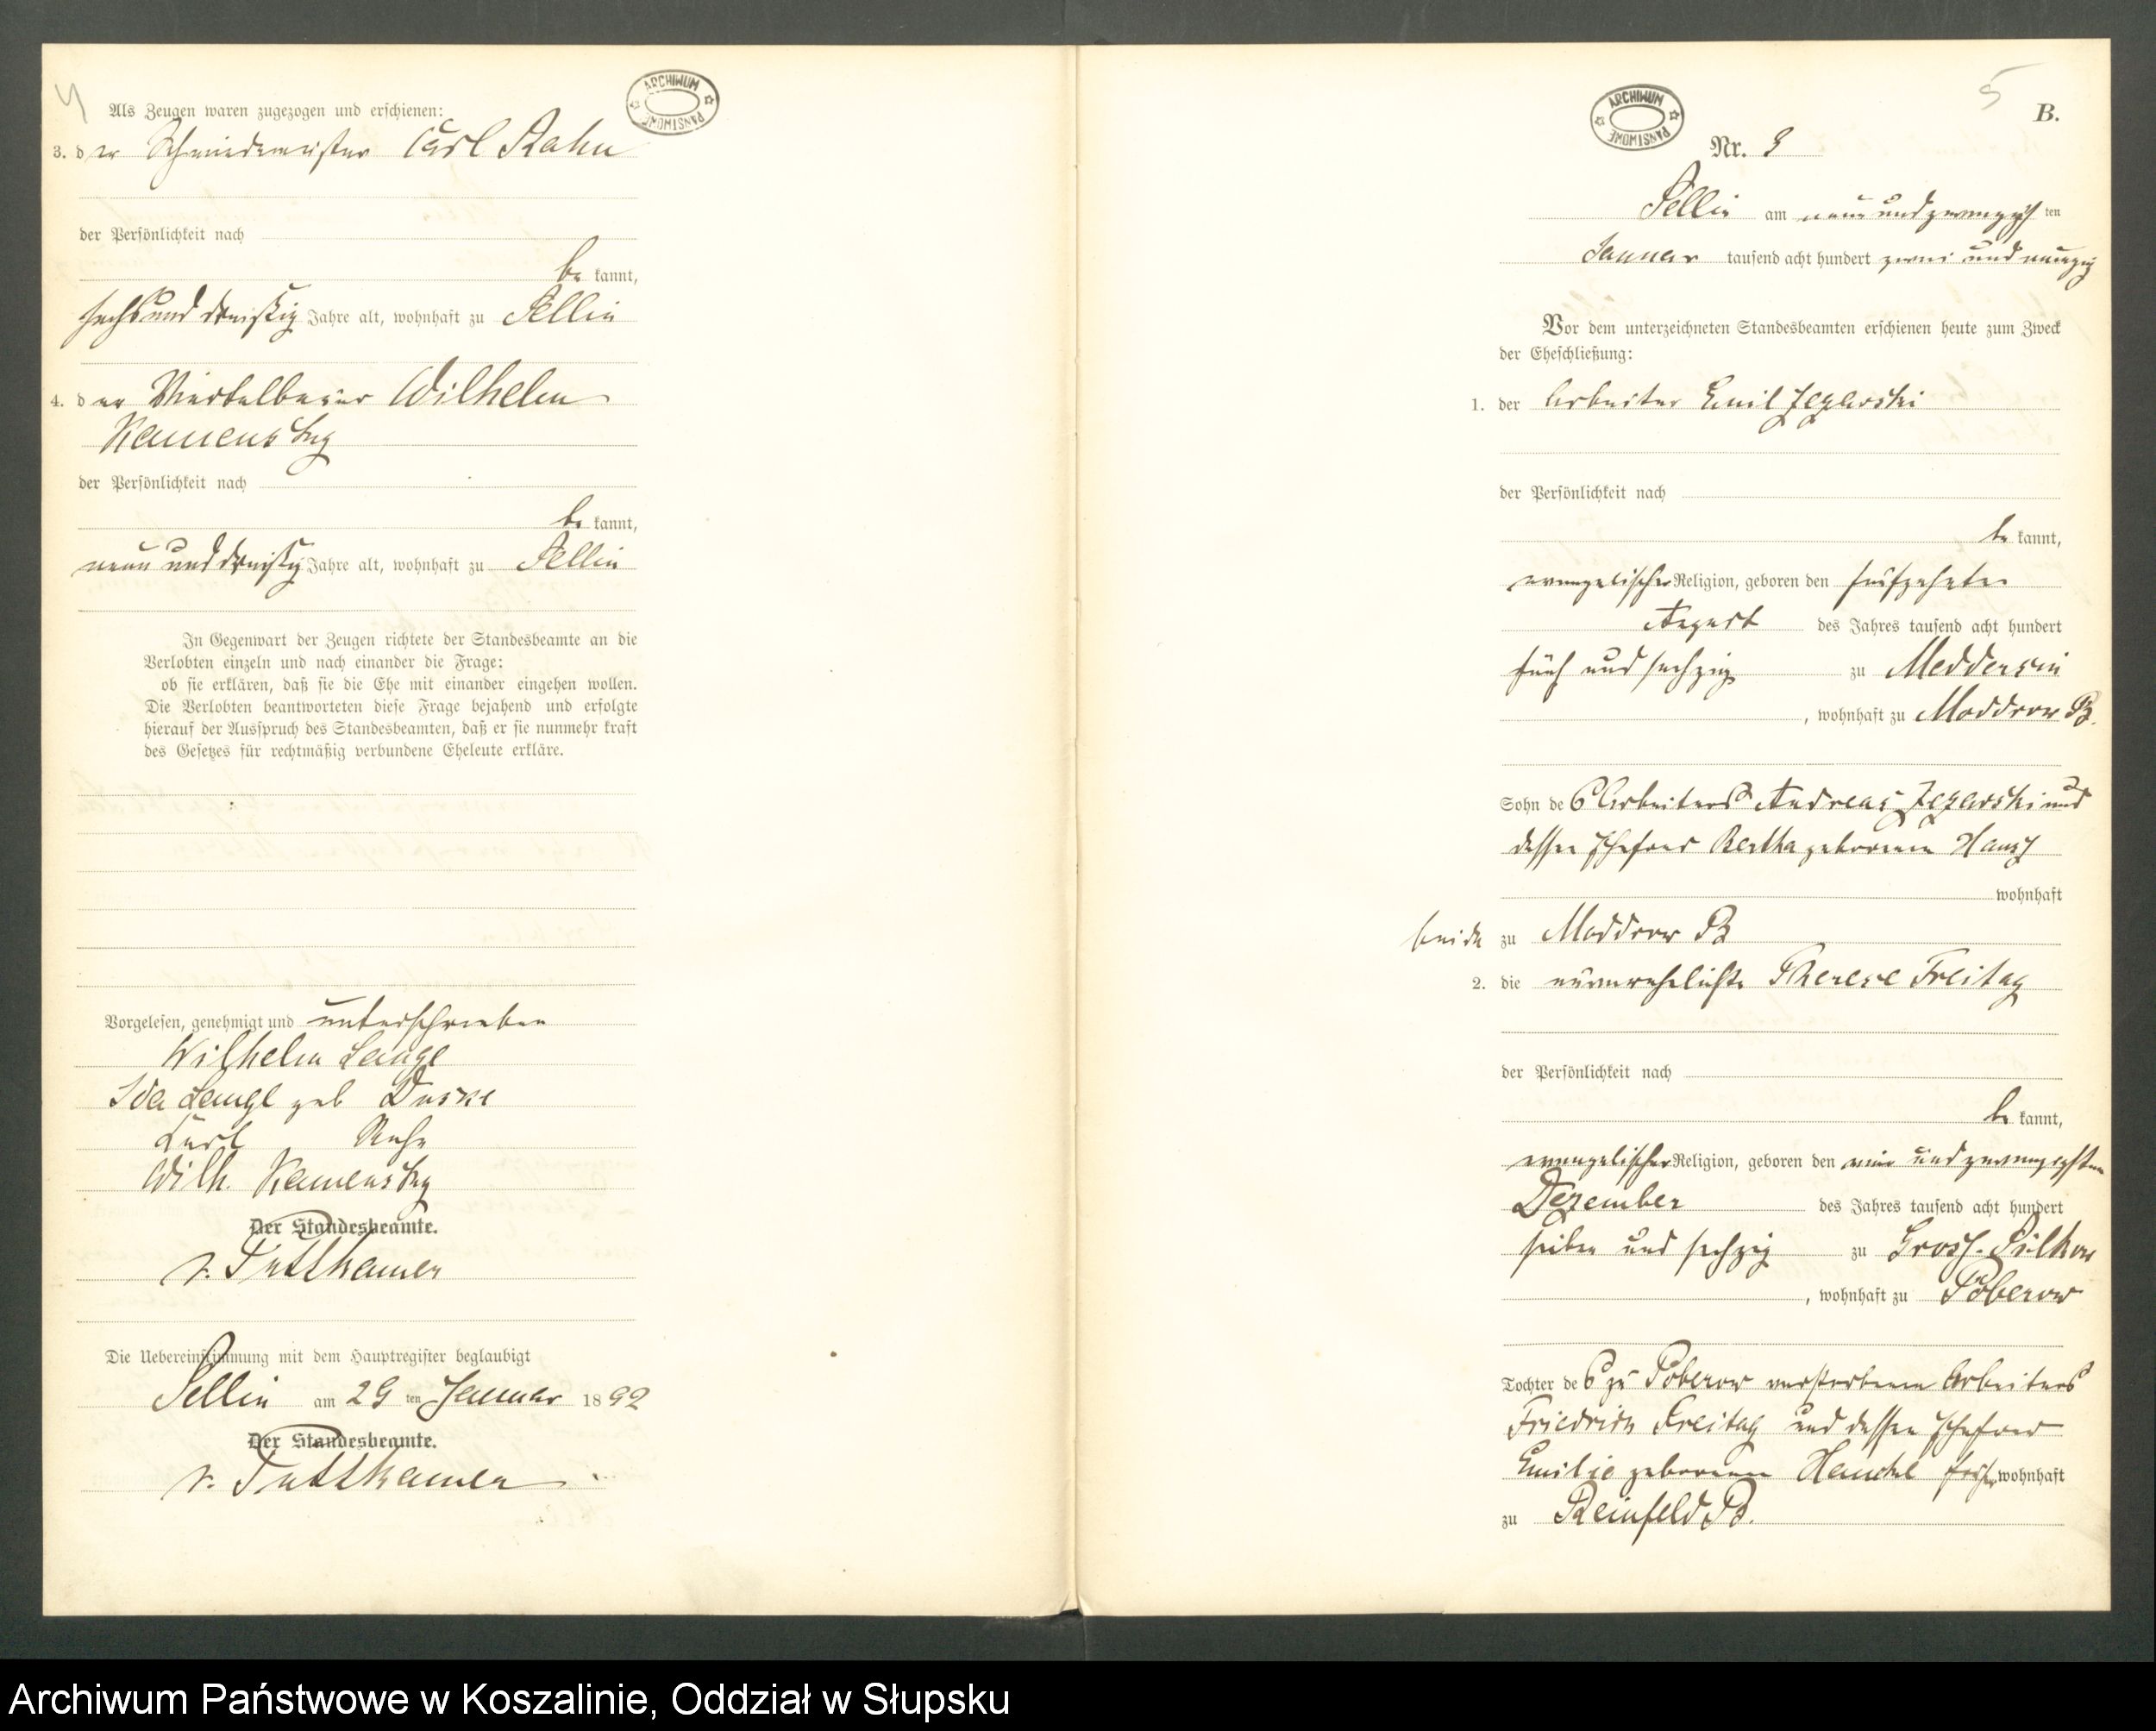 4
Als Zeugen waren zugezogen und erschienen:
ARCHIWUM PAŃSTWOWE
3. der Schmiedemeister Carl Rahn
der Persönlichkeit nach
be kannt,
sechsunddreißig Jahre alt, wohnhaft zu Sellin
4. der Viertelbauer Wilhelm
Kamensky
der Persönlichkeit nach
be kannt,
neununddreißig Jahre alt, wohnhaft zu Sellin
In Gegenwart der Zeugen richtete der Standesbeamte an die
Verlobten einzeln und nach einander die Frage:
ob sie erklären, daß sie die Ehe mit einander eingehen wollen.
Die Verlobten beantworteten diese Frage bejahend und erfolgte
hierauf der Ausspruch des Standesbeamten, daß er sie nunmehr kraft
des Gesetzes für rechtmäßig verbundene Eheleute erkläre.
Vorgelesen, genehmigt und unterschrieben
Wilhelm Lange
Ida Lange geb
Carl
Wilh. Kamensky
Der Standesbeamte.
v. Puttkamer
Die Uebereinstimmung mit dem Hauptregister beglaubigt
Sellin am 29 ten Januar 1892
Der Standesbeamte.
v. Puttkamer
5
B.
ARCHIWUM PAŃSTWOWE
Nr.
Sellin am neunundzwanzigsten
Januar tausend acht hundert zwei und neunzig
Vor dem unterzeichneten Standesbeamten erschienen heute zum Zweck
der Eheschließung:
1. der Arbeiter Emil Jezarski
der Persönlichkeit nach
be kannt,
evangelischer Religion, geboren den
August des Jahres tausend acht hundert
fünf und sechzig zu Meddersin
, wohnhaft zu Moddrow B.
Sohn des Arbeiters Andreas Jezarski und
dessen Ehefrau Bertha geborenen
wohnhaft
beide zu Moddrow B
2. die unverehelichte Therese Freitag
der Persönlichkeit nach
be kannt,
evangelischer Religion, geboren den ein und zwanzigsten
Dezember des Jahres tausend acht hundert
sieben und sechzig zu Gross-
, wohnhaft zu Poberow
Tochter des zu Poberow verstorbenen Arbeiters
Friedrich Freitag und dessen Ehefrau
Emilie geborenen wohnhaft
zu Reinfeld B.
Archiwum Państwowe w Koszalinie, Oddział w Słupsku